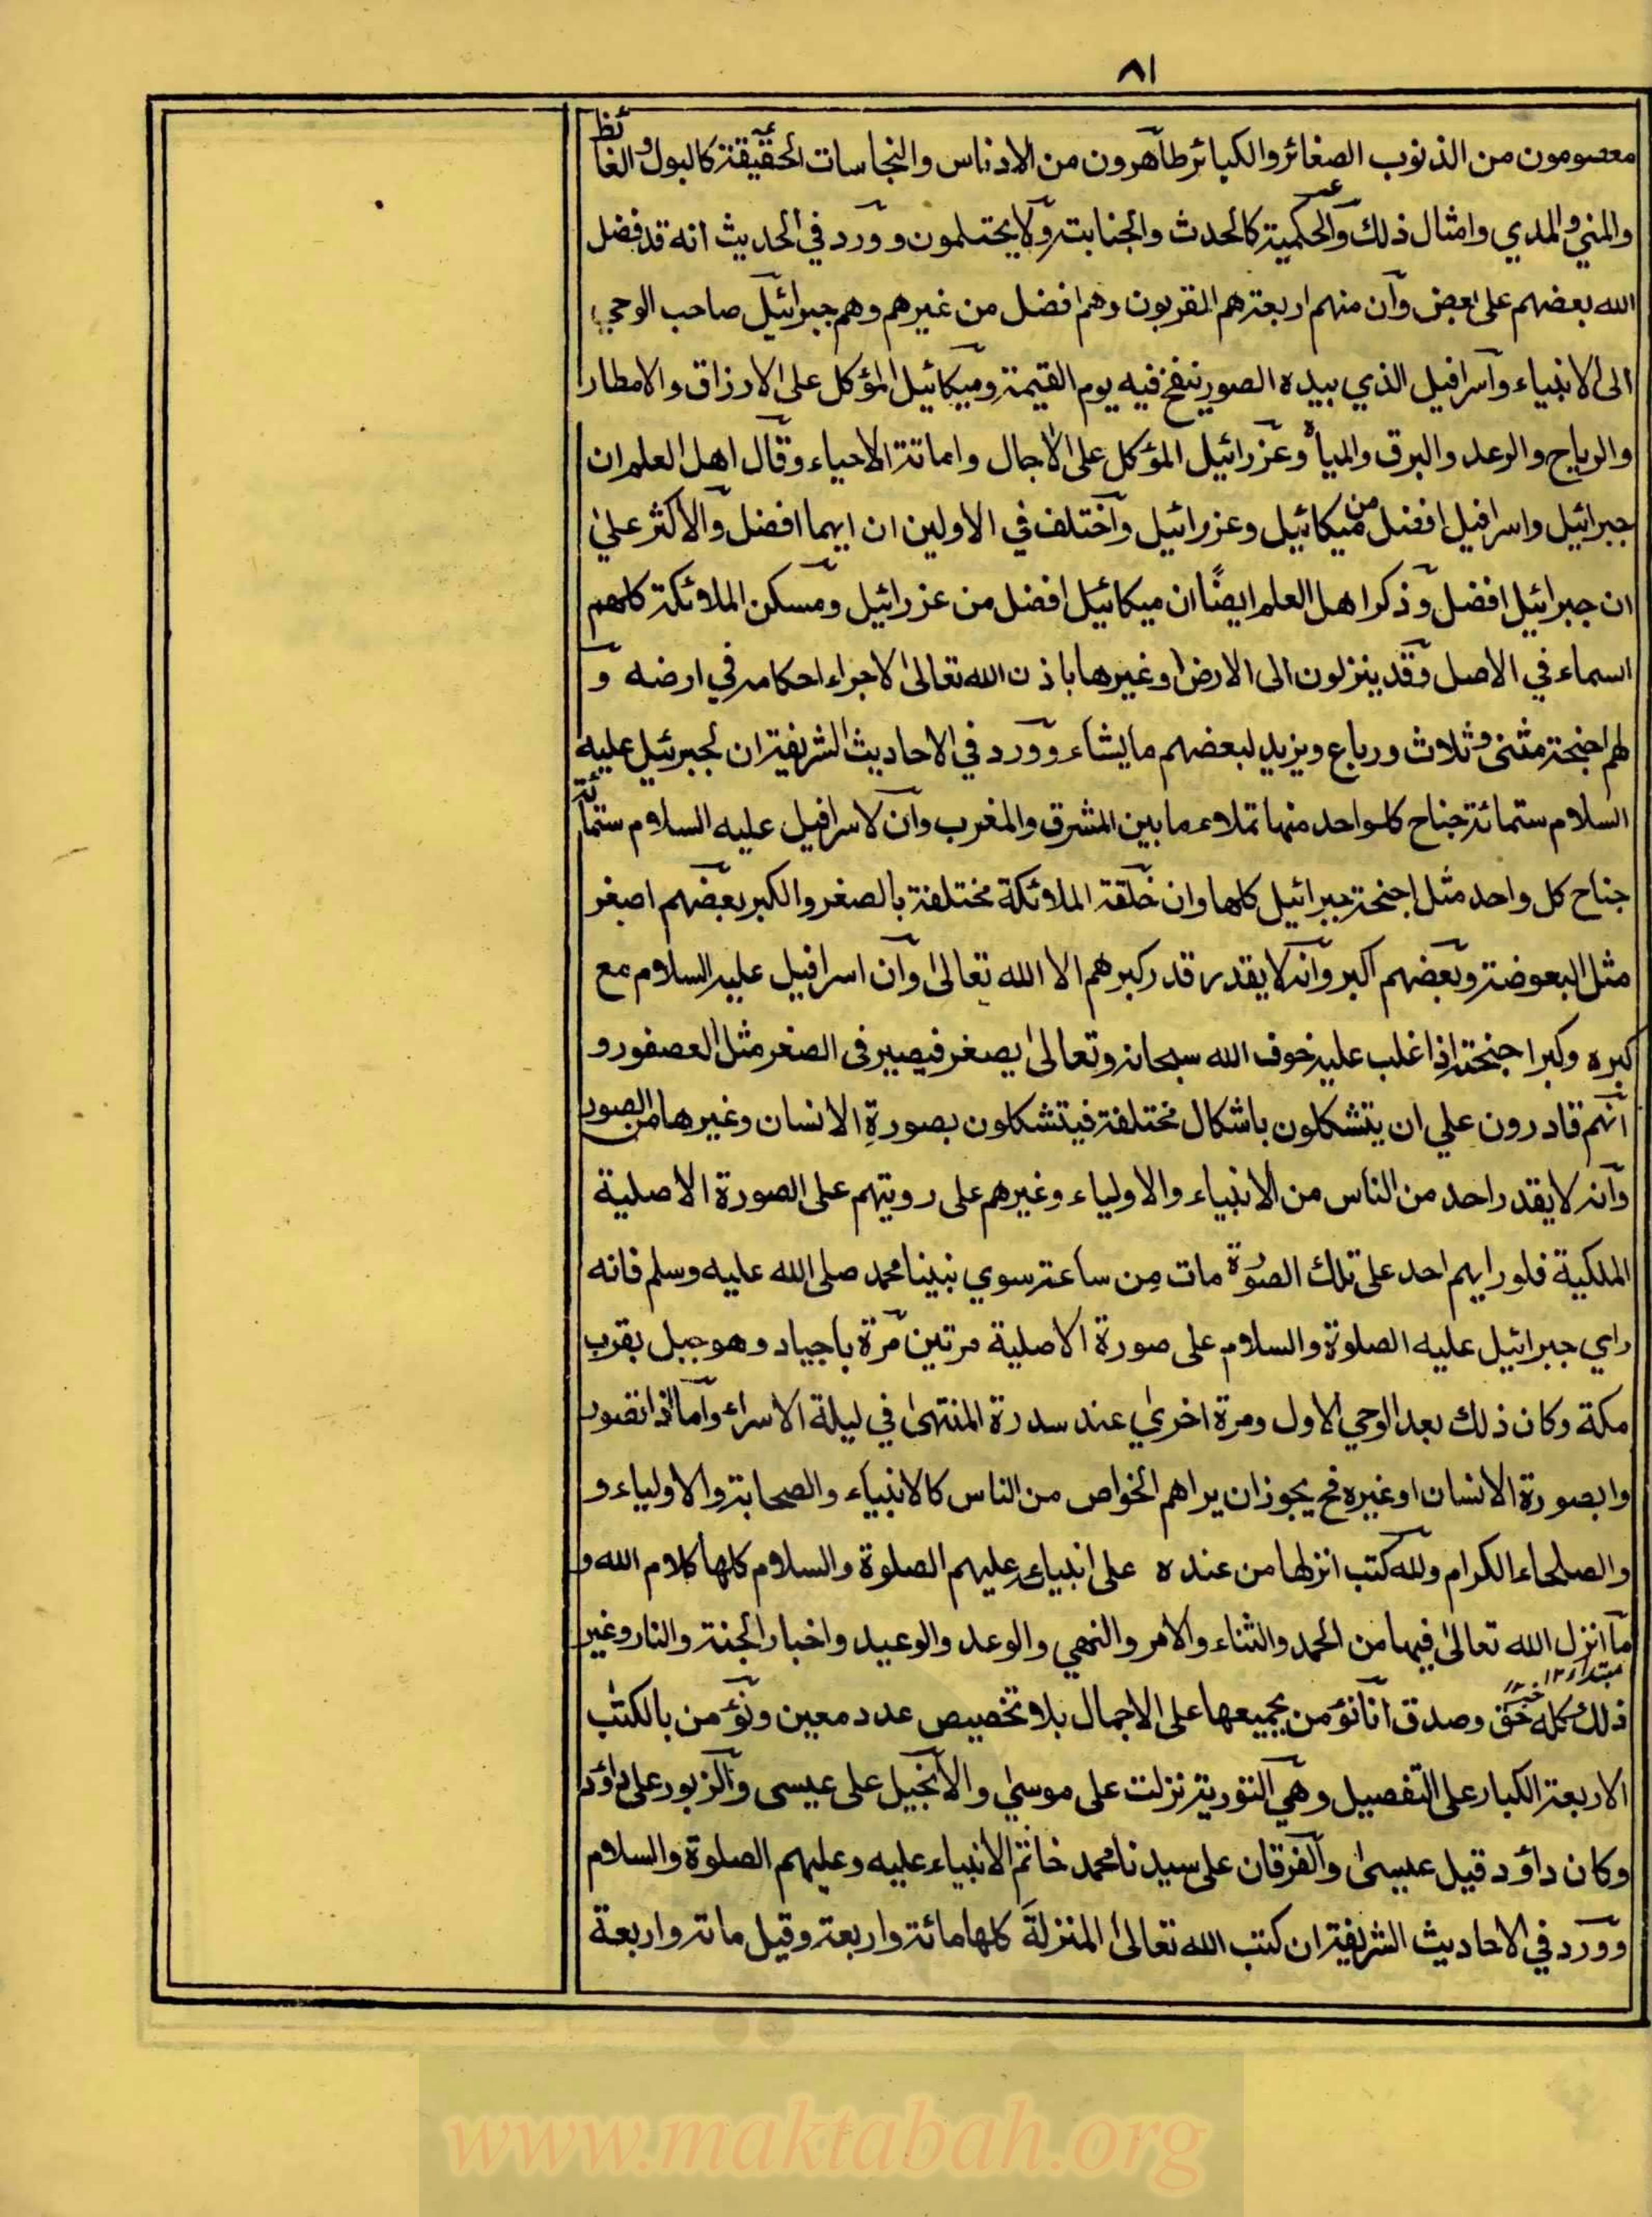 ٨١
معصومون من الذنوب الصغائر والكبائر طاهرون من الادناس والنجاسات الحقيقة كالبول و الغائط
والمني والمدي وامثال ذلك والحكمية كالحدث والجنابة ولا يحتلمون و ورد في الحديث انه قد فضل
الله بعضهم على بعض وان منهم اربعة هم المقربون وهم افضل من غيرهم وهم جبرائيل صاحب الوحي
الى الانبياء واسرافيل الذي بيده الصور ينفخ فيه يوم القيمة وميكائيل المؤكل على الارزاق والامطار
والرياح والرعد والبرق والمياه وعزرائيل المؤكل على الآجال واماتة الاحياء وقال اهل العلم ان
جبرائيل واسرافيل افضل من ميكائيل وعزرائيل واختلف في الاولين ان ايهما افضل والاكثر على
ان جبرائيل افضل وذكر اهل العلم ايضًا ان ميكائيل افضل من عزرائيل ومسكن الملائكة كلهم
السماء في الاصل وقد ينزلون الى الارض او غيرها باذن الله تعالى لاجراء احكامه في ارضه و
لهم اجنحة مثنى وثلاث ورباع ويزيد لبعضهم ما يشاء وورد في الاحاديث الشريفة ان لجبرئيل عليه
السلام ستمائة جناح كلواحد منها تملاء ما بين المشرق والمغرب وان لاسرافيل عليه السلام ستمائة
جناح كل واحد مثل اجنحة جبرائيل كلها وان خلقة الملائكة مختلفة بالصغر والكبر بعضهم اصغر
مثل البعوضة وبعضهم اكبر وانه لا يقدر قدر كبرهم الا الله تعالى وان اسرافيل عليه السلام مع
كبره وكبر اجنحته اذا غلب عليه خوف الله سبحانه وتعالى يصغر فيصير في الصغر مثل العصفور و
انهم قادرون علي ان يتشكلون باشكال مختلفة فيتشكلون بصورةِ الانسان وغيرها من الصور
وانه لا يقدر احد من الناس من الانبياء والاولياء وغيرهم على رويتهم على الصورة الاصلية
الملكية فلو رايهم احد على تلك الصورة مات مِن ساعته سوي نبينا محمد صلى الله عليه وسلم فانه
راي جبرائيل عليه الصلوة والسلام على صورة الاصلية مرتين مرة باجياد وهو جبل بقرب
مكة وكان ذلك بعد الوحي الاول ومرة اخرى عند سدرة المنتهى في ليلة الاسراء واما اذا تصور
وا بصورة الانسان او غيره فح يجوز ان يراهم الخواص من الناس كالانبياء والصحابة والاولياء و
والصلحاء الكرام ولله كتب انزلها من عنده على انبياء عليهم الصلوة والسلام كلها كلام الله و
ما انزل الله تعالى فيها من الحمد والثناء والامر والنهي والوعد والوعيد واخبار الجنة والنار وغير
مبتدا ١٢ خبر
ذلك كله حق وصدق انا نؤمن بجميعها على الاجمال بلا تخصيص عدد معين ونؤمن بالكتب
الاربعة الكبار على التفصيل وهي التورية نزلت على موسى والانجيل على عيسى والزبور على داؤد
وكان داؤد قبل عيسى والفرقان على سيدنا محمد خاتم الانبياء عليه وعليهم الصلوة والسلام
وورد في الاحاديث الشريفة ان كتب الله تعالى المنزلة كلها مائة واربعة وقيل ماته واربعة
www.maktabah.org